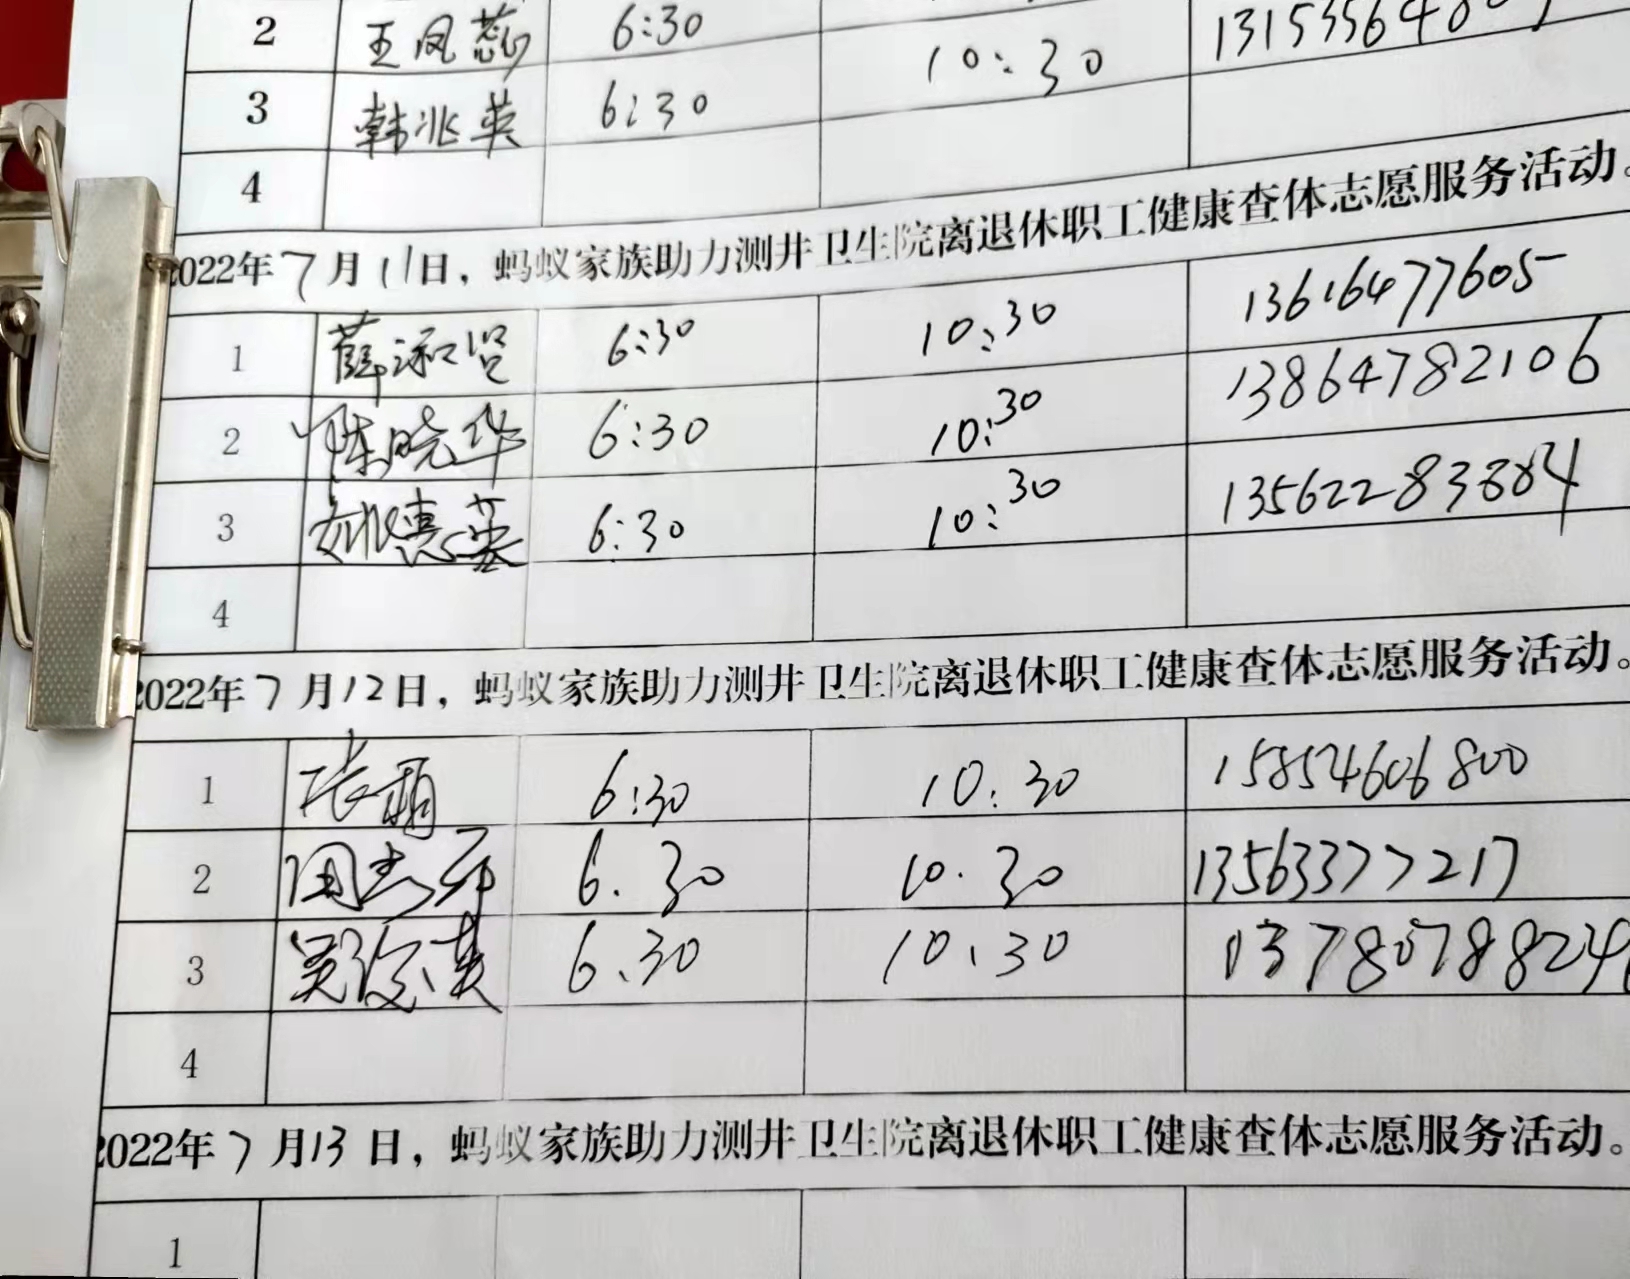 2 王凤蕊 6:30 10:30
3 韩兆英 6:30
4
2022年7月11日，蚂蚁家族助力测井卫生院离退休职工健康查体志愿服务活动。
1 薛淑贤 6:30 10:30 13616477605
2 陈晓华 6:30 10:30 13864782106
3 6:30 10:30 13562283884
4
2022年7月12日，蚂蚁家族助力测井卫生院离退休职工健康查体志愿服务活动。
1 张霜 6:30 10:30 15854606800
2 6.30 10.30 13563377217
3 6.30 10.30
4
2022年7月13日，蚂蚁家族助力测井卫生院离退休职工健康查体志愿服务活动。
1